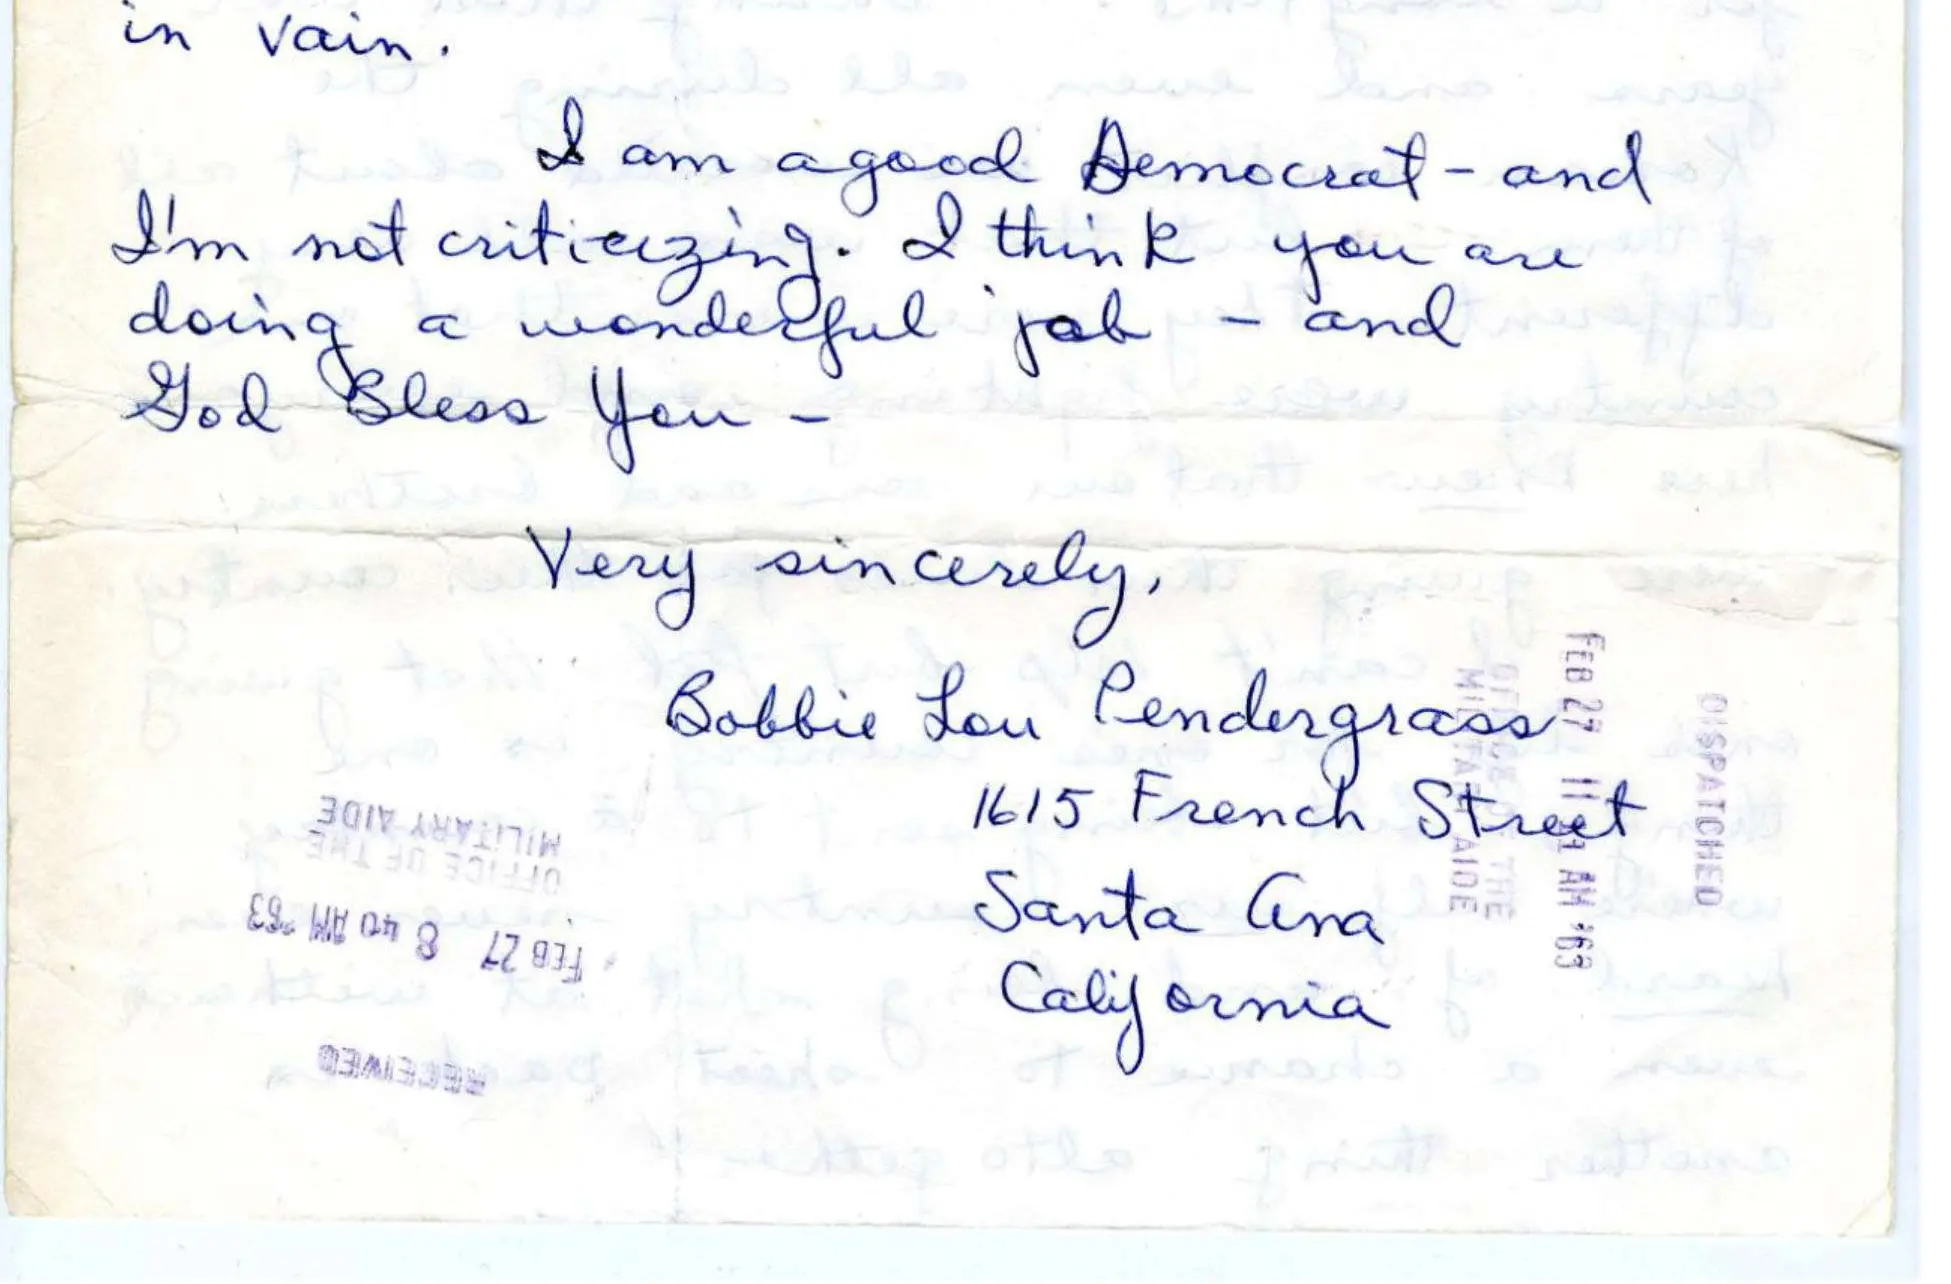 in vain.
I am a good Democrat - and
I'm not criticizing. I think you are
doing a wonderful job - and
God Bless You -
Very sincerely,
Bobbie Lou Pendergrass
1615 French Street
Santa Ana
California
RECEIVED
FEB 27 8 40 AM '63
OFFICE OF THE
MILITARY AIDE
DISPATCHED
FEB 27 11 AM '63
OFFICE OF THE
MILITARY AIDE